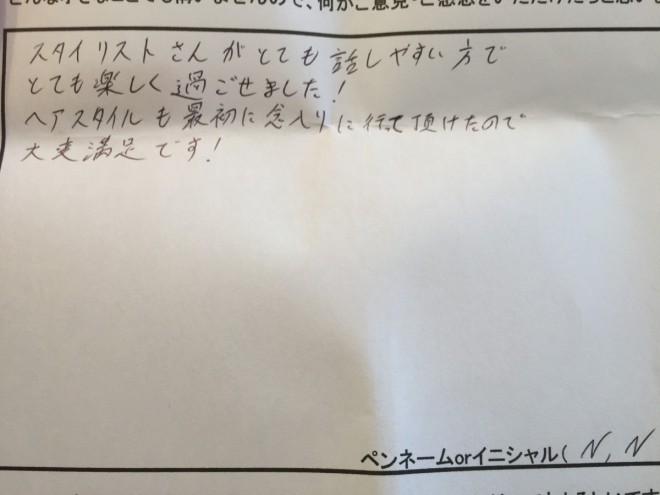 スタイリストさんがとても話しやすい方で
とても楽しく過ごせました!
ヘアスタイルも最初に念入りに行て頂けたので
大変満足です!
ペンネームorイニシャル( N, N